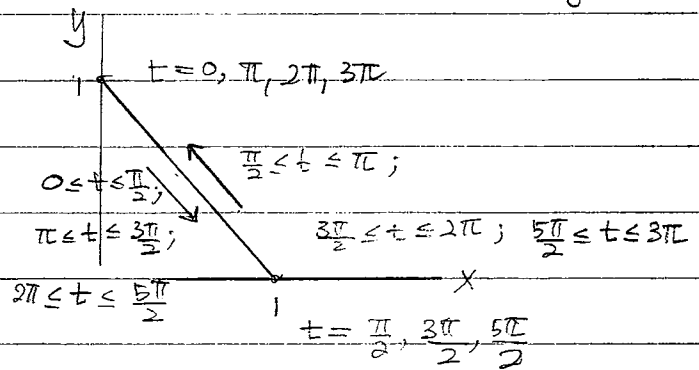 y
1 t = 0, π, 2π, 3π
π/2 ≤ t ≤ π ;
0 ≤ t ≤ π/2 ;
π ≤ t ≤ 3π/2 ; 3π/2 ≤ t ≤ 2π ; 5π/2 ≤ t ≤ 3π
2π ≤ t ≤ 5π/2 1 x
t = π/2, 3π/2, 5π/2